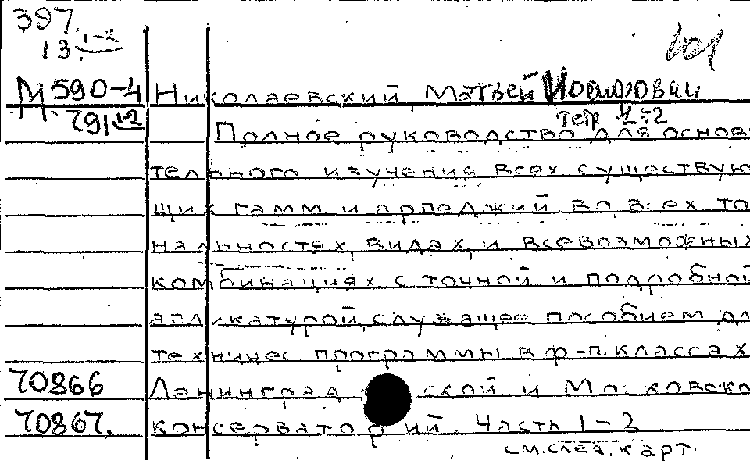 397.
13. 1-2
101
М590-4 Николаевский, Матвей Иосифович
791 1-2 тетр 1-2
Полное руководство для основа
тельного изучения всех существую
щих гамм и арпеджий во всех то
нальностях, видах, и всевозможных
комбинациях с точной и подробной
аппликатурой, служащее пособием дл
техничес программы в ф-п. классах
70866 Ленинградской и Московско
70867. консерваторий. Часть 1-2
см. след. карт.